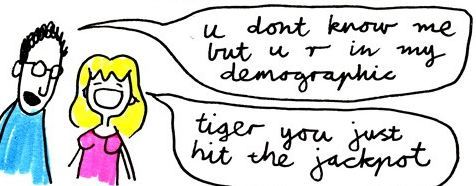 u dont know me
but u r in my
demographic
tiger you just
hit the jackpot